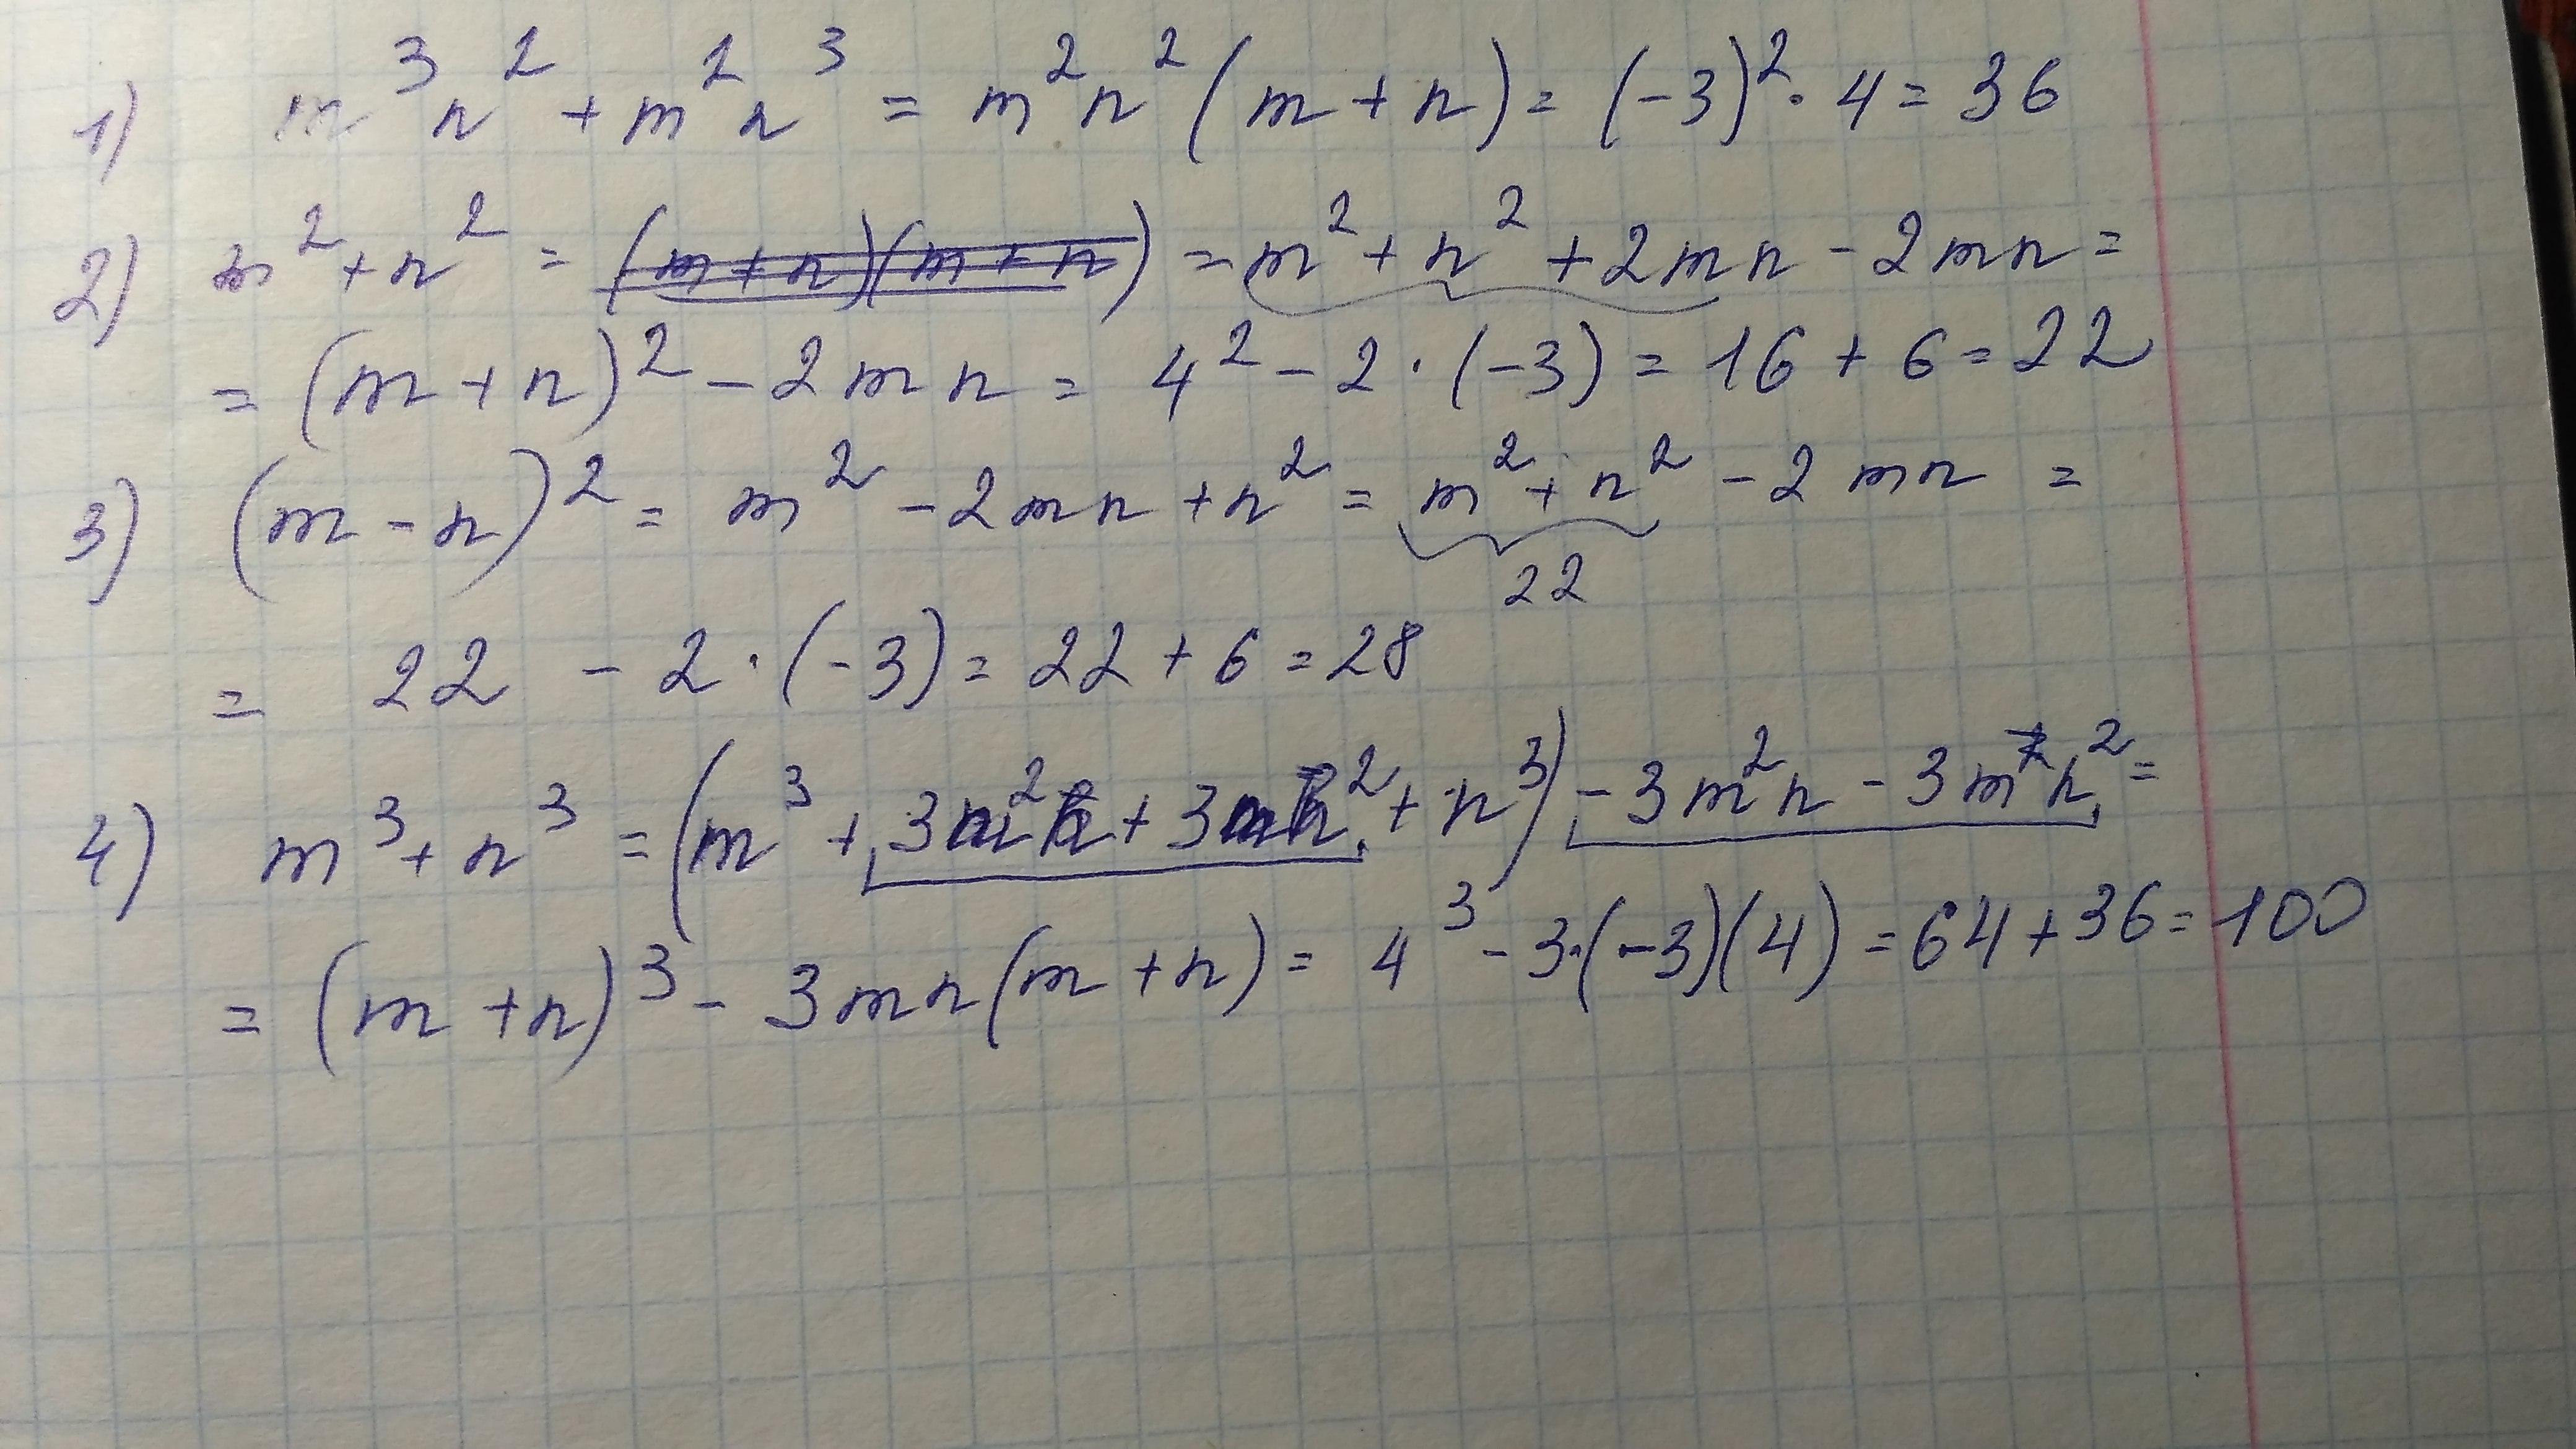 1) m³n² + m²n³ = m²n²(m+n) = (-3)²·4 = 36
2) m²+n² = (m+n)(m+n) = m²+n²+2mn-2mn=
= (m+n)² - 2mn = 4² - 2·(-3) = 16+6=22
3) (m-n)² = m² - 2mn + n² = m²+n² - 2mn =
22
= 22 - 2·(-3) = 22+6=28
4) m³+n³ = (m³+3m²n+3mn²+n³) -3m²n - 3mn² =
= (m+n)³ - 3mn(m+n) = 4³ - 3·(-3)(4) = 64+36=100